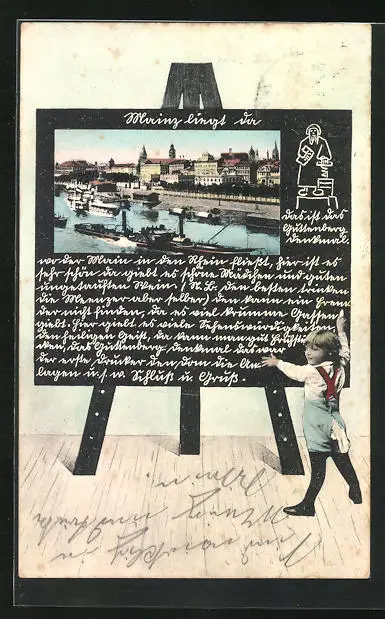 Mainz liegt da
das ist das
Guttenberg
denkmal.
wo der Main in den Rhein fließt, hier ist es
sehr schön da giebt es schöne Mädchen und guten
ungetauften Wein (N.B. den besten trinken
die Meenzer aber selber) den kann ein Frem
der nicht finden, da es viel krumme Gassen
giebt. Hier giebt es viele Sehenswürdigkeiten
den heiligen Geist, da kann man gut Frühstü
cken, das Guttenberg denkmal das war
der erste drucker den, dom die An
lagen u.s.w. Schluß u. Gruß.